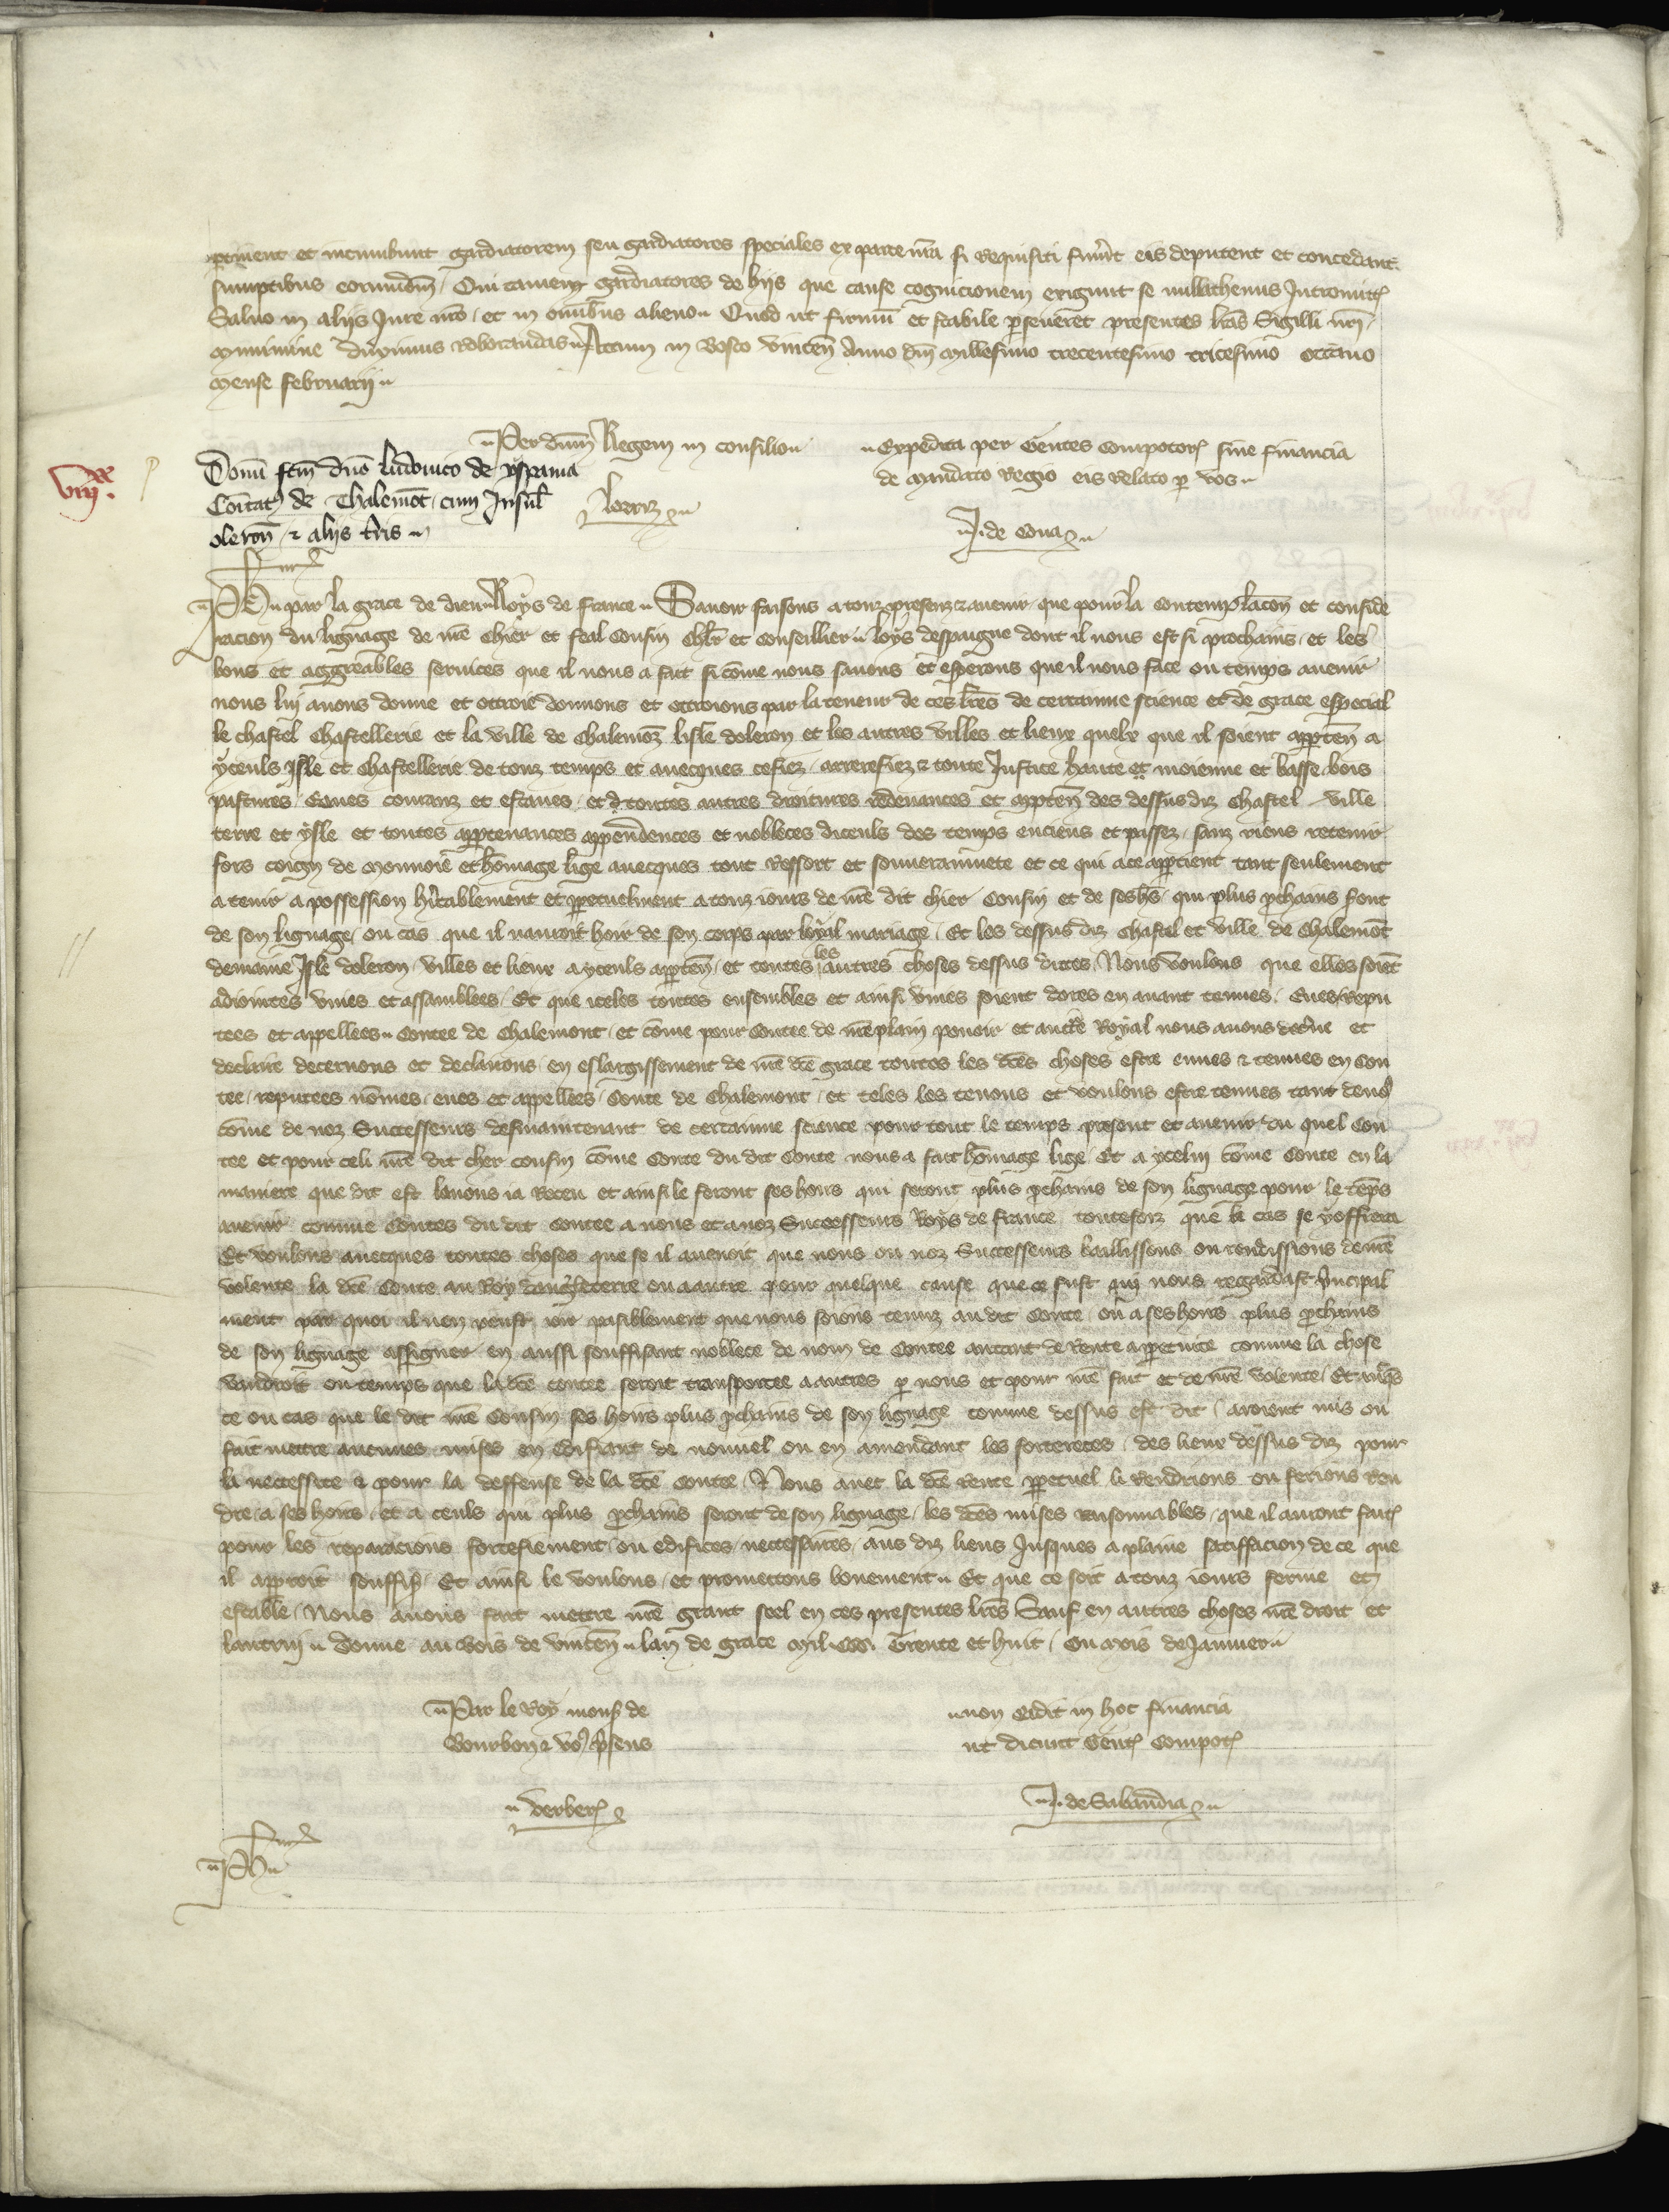 pertinent et incumbunt gardiatorem seu gardiatores speciales ex parte nrā si Requisiti fuerīt eis deputent et concedant
sumptibus eorumdem / Qui tamen gardiatores de hijs que cause cognicionem exigunt se nullathenus Intromittt
Saluo in alijs Jure nrō / et in omībus alieno Quod ut firmū et stabile perseueret presentes lrās Sigilli nrī
munimine duximus roborandas Actum in Bosco Vincen Anno dnī Millesimo trecentesimo tricesimo octauo
Mense februarij
Per dnm Regem in consilio
Expedita per Gentes Compotor sine financia
de mandato Regio eis Relato per vos
vijxx.
Donū fcm dnō ludouico de yspania
Comitat de Thalemot cum Insul
oleron / & alijs tris
Lorriz
J. de Cona
Furd
Ph par la grace de dieu Roys de france Sauoir faisons a touz presenz & auenir que pour la contemplacon et conside
racion du lignage de nrē chier et feal Cousin chlr et Conseillier loys despaigne dont il nous est si prochains / et les
bons et aggreables seruices que il nous a fait si come nous sauons et esperons que il nous face ou temps auenir
nous lui auons donne et ottroie donnons et ottroions par la teneur de ces lres de certainne science et de grace especial
le chastel Chastellerie et la ville de Chalemoz lisle doleron et les autres villes et lieux quelx que il soient apparten a
yceuls Isle et Chastellerie de touz temps et auecques ce fiez / arrerefiez & toute Justice haute et moienne et basse bois
pastures / Eaues couranz et estanes / et d toutes autres droitures redeuances et apparten des dessusdiz chastel ville
terre et ysle et toutes appartenances appendences et nobleces diceuls des temps enciens et passez / sanz riens retenir
fors coign de monnoie et homage lige auecques tout Ressort et souuerainnete et ce qui a ce appartient tant seulement
a tenir a possession hērtablement et perpetuelment a touz iours de nrē dit chier Cousin et de ses hrs qui plus prochains sont
de son lignage / ou cas que il nauroit hoir de son corps par loyal mariage / Et les dessus diz chastel et ville de Chalemōt
demaine Isle doleron / villes et lieux a yceuls apparten / et toutes les autres choses dessus dictes / Nous voulons que elles soiēt
adiointes vnies et assamblees / Et que iceles toutes ensembles et ainsi vnies soient dores en auant tenues / Eues / Repu
tees et appellees Contee de Chalemont / et come pour Contee de nrē plain pouoir et auctte Royal nous auons decrne et
declaire decernons et declairons / en eslargissement de nrē dcē grace toutes les dcēs choses estre eues & tenues en Con
tee / reputees nomes / eues et appellees / Conte de Chalemont / et teles les tenons et voulons estre tenues tant de no9
come de noz Successeurs desmaintenant de certainne science pour tout le temps present et auenir du quel Con
tee et pour celi nrē dit cher cousin come Conte du dit Conte nous a fait homage lige Et a ycelui come Conte en la
maniere que dit est lauons ia Receu et ainsi le feront ses hoirs qui seront plus prochains de son lignage pour le teps
auenir comme Contes du dit contee a nous et a noz Successeurs Roys de france toutesfoiz que le cas se y offrera
Et voulons auecques toutes choses que se il auenoit que nous ou noz Successeurs baillissons ou rendissions de nrē
volente la dcē Conte au Roy dangleterre ou a autre pour quelque cause que ce fust qui nous regardast princīpal
ment par quoi il nen peust ioir paisiblement que nous soions tenuz au dit Conte / ou a ses hoirs plus prochains
de son lignage assigner en aussi souffisant noblece de nom de Contee autant de Rente a perpetuite comme la chose
vaudroit ou temps que la dcē contee seroit transportee a autres par nous et pour nrē fait et de nrē volente / Et
ce ou cas que le dit nrē Cousin ses hoirs plus prochains de son lignage comme dessus est dit / aroient mis ou
fait mettre aucunes mises en edifiant de nouuel ou en amendant les forteresces / des lieux dessus diz pour
la necessite & pour la deffense de la dcē contee / Nous auec la dcē rente perpetuel li Rendrions ou ferions Ren
dre / a ses hoirs / et a ceuls qui plus prochains seront de son lignage / les dcēs mises raisonnables que il auront faitt
pour les reparacions fortefiement / ou edifices / necessaires / aus diz lieus Jusques a plaine satisfacion de ce que
il apparroit souffis Et ainsi le voulons / et promettons bonement Et que ce soit a touz iours ferme et
estable / Nous auons fait mettre nrē grant seel en ces presentes lrēs Sauf en autres choses nrē droit et
lautrui Donne au Bois de Vincen lan de grace Mil CCC Trente et huit / Ou Mois de Januier
Par le Roy mons de
Bourbon & vo9 presens
non cadit in hoc financia
ut dicunt Gent Compot
Verber
J. de Sabaudia
Furd
Ph